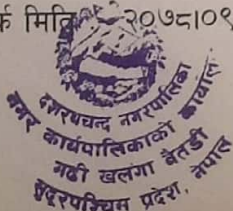 र्क मिति २०७८।०९
दशरथचन्द नगरपालिका
नगर कार्यपालिकाको कार्यालय
गढी खलंगा बैतडी
सुदूरपश्चिम प्रदेश, नेपाल